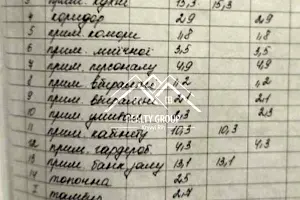 3 прим. кухні 15,3 15,3
4 коридор 2,9 2,9
5 прим. комори 4,8 4,8
6 прим. мийної 3,5 3,5
7 прим. персоналу 4,9 4,9
8 прим. 4,2 4,2
9 прим. 2,1
10 прим. 2,3
REALTY GROUP
11 прим. кабінету 10,3 10,3
12 прим. гардероб. 4,3 4,3
13 прим. банк. залу 13,1 13,1
14 топочна 2,5
I тамбур 2,7